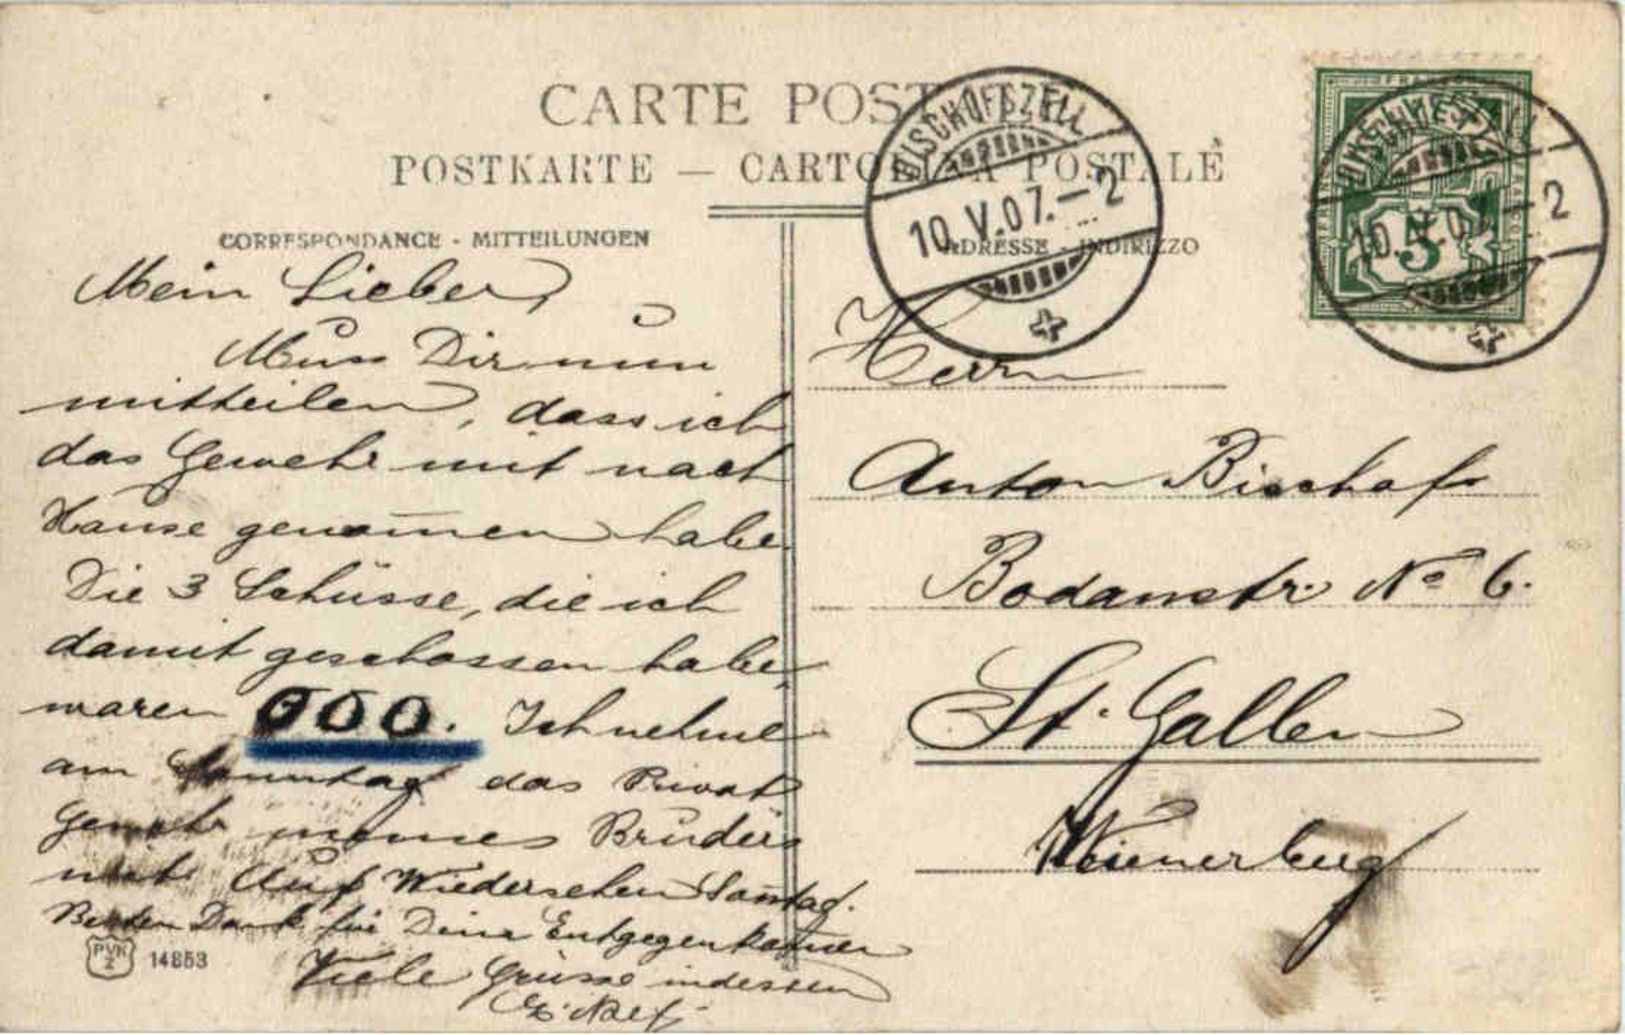 CARTE POSTALE
POSTKARTE — CARTOLINA POSTALE
CORRESPONDANCE - MITTEILUNGEN
ADRESSE - INDIRIZZO
BISCHOFSZELL
10.V.07.–2
BISCHOFSZELL
10.V.07.–2
FRANCO
5
Mein Lieber,
Muss Dir nun
mitteilen, dass ich
das Gewehr mit nach
Hause genom̅en habe.
Die 3 Schüsse, die ich
damit geschossen habe,
waren 000. Ich nehme
am Sonntag das Privat
Gewehr meines Bruders
mit. Auf Wiedersehen Sontag.
Besten Dank für Deine Entgegenkommen
Viele Grüsse indessen
Herrn
Anton Bischof
Bodanstr. No 6.
St. Gallen
Wienerberg
PVKZ
14853